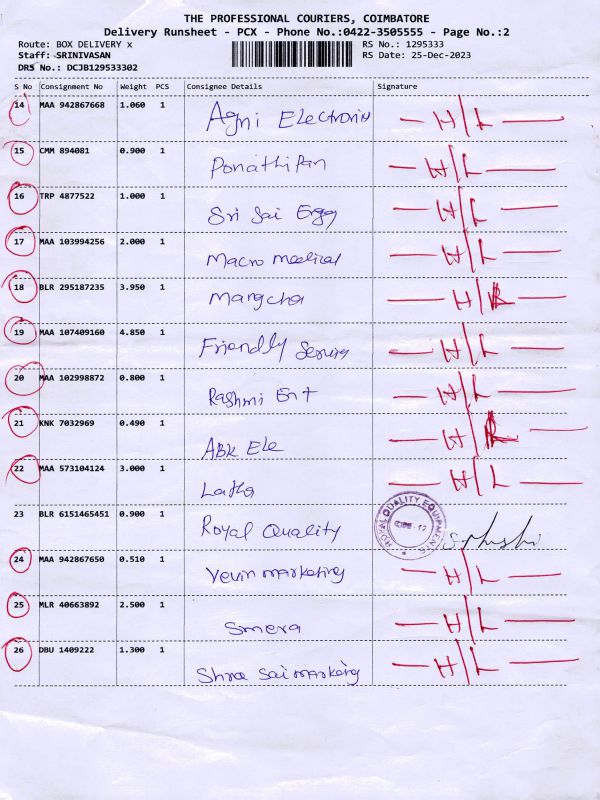 THE PROFESSIONAL COURIERS, COIMBATORE
Delivery Runsheet - PCX - Phone No.:0422-3505555 - Page No.:2
Route: BOX DELIVERY x RS No.: 1295333
Staff: SRINIVASAN RS Date: 25-Dec-2023
DRS No.: DCJB129533302
S No Consignment No Weight PCS Consignee Details Signature
14 MAA 942867668 1.060 1 Agni Electronix H/L
15 CMM 894081 0.900 1 H/L
16 TRP 4877522 1.000 1 Sri Sai Engg H/L
17 MAA 103994256 2.000 1 Macro Medical H/L
18 BLR 295187235 3.950 1 H/
19 MAA 107409160 4.850 1 Friendly H/L
20 MAA 102998872 0.800 1 Rashmi Ent H/L
21 KNK 7032969 0.490 1 ABK Ele H/
22 MAA 573104124 3.000 1 Latha H/L
23 BLR 6151465451 0.900 1 Royal Quality ROYAL QUALITY EQUIPMENTS
24 MAA 942867650 0.510 1 marketing H/L
25 MLR 40663892 2.500 1 Smera H/L
26 DBU 1409222 1.300 1 Shree Sai marketing H/L